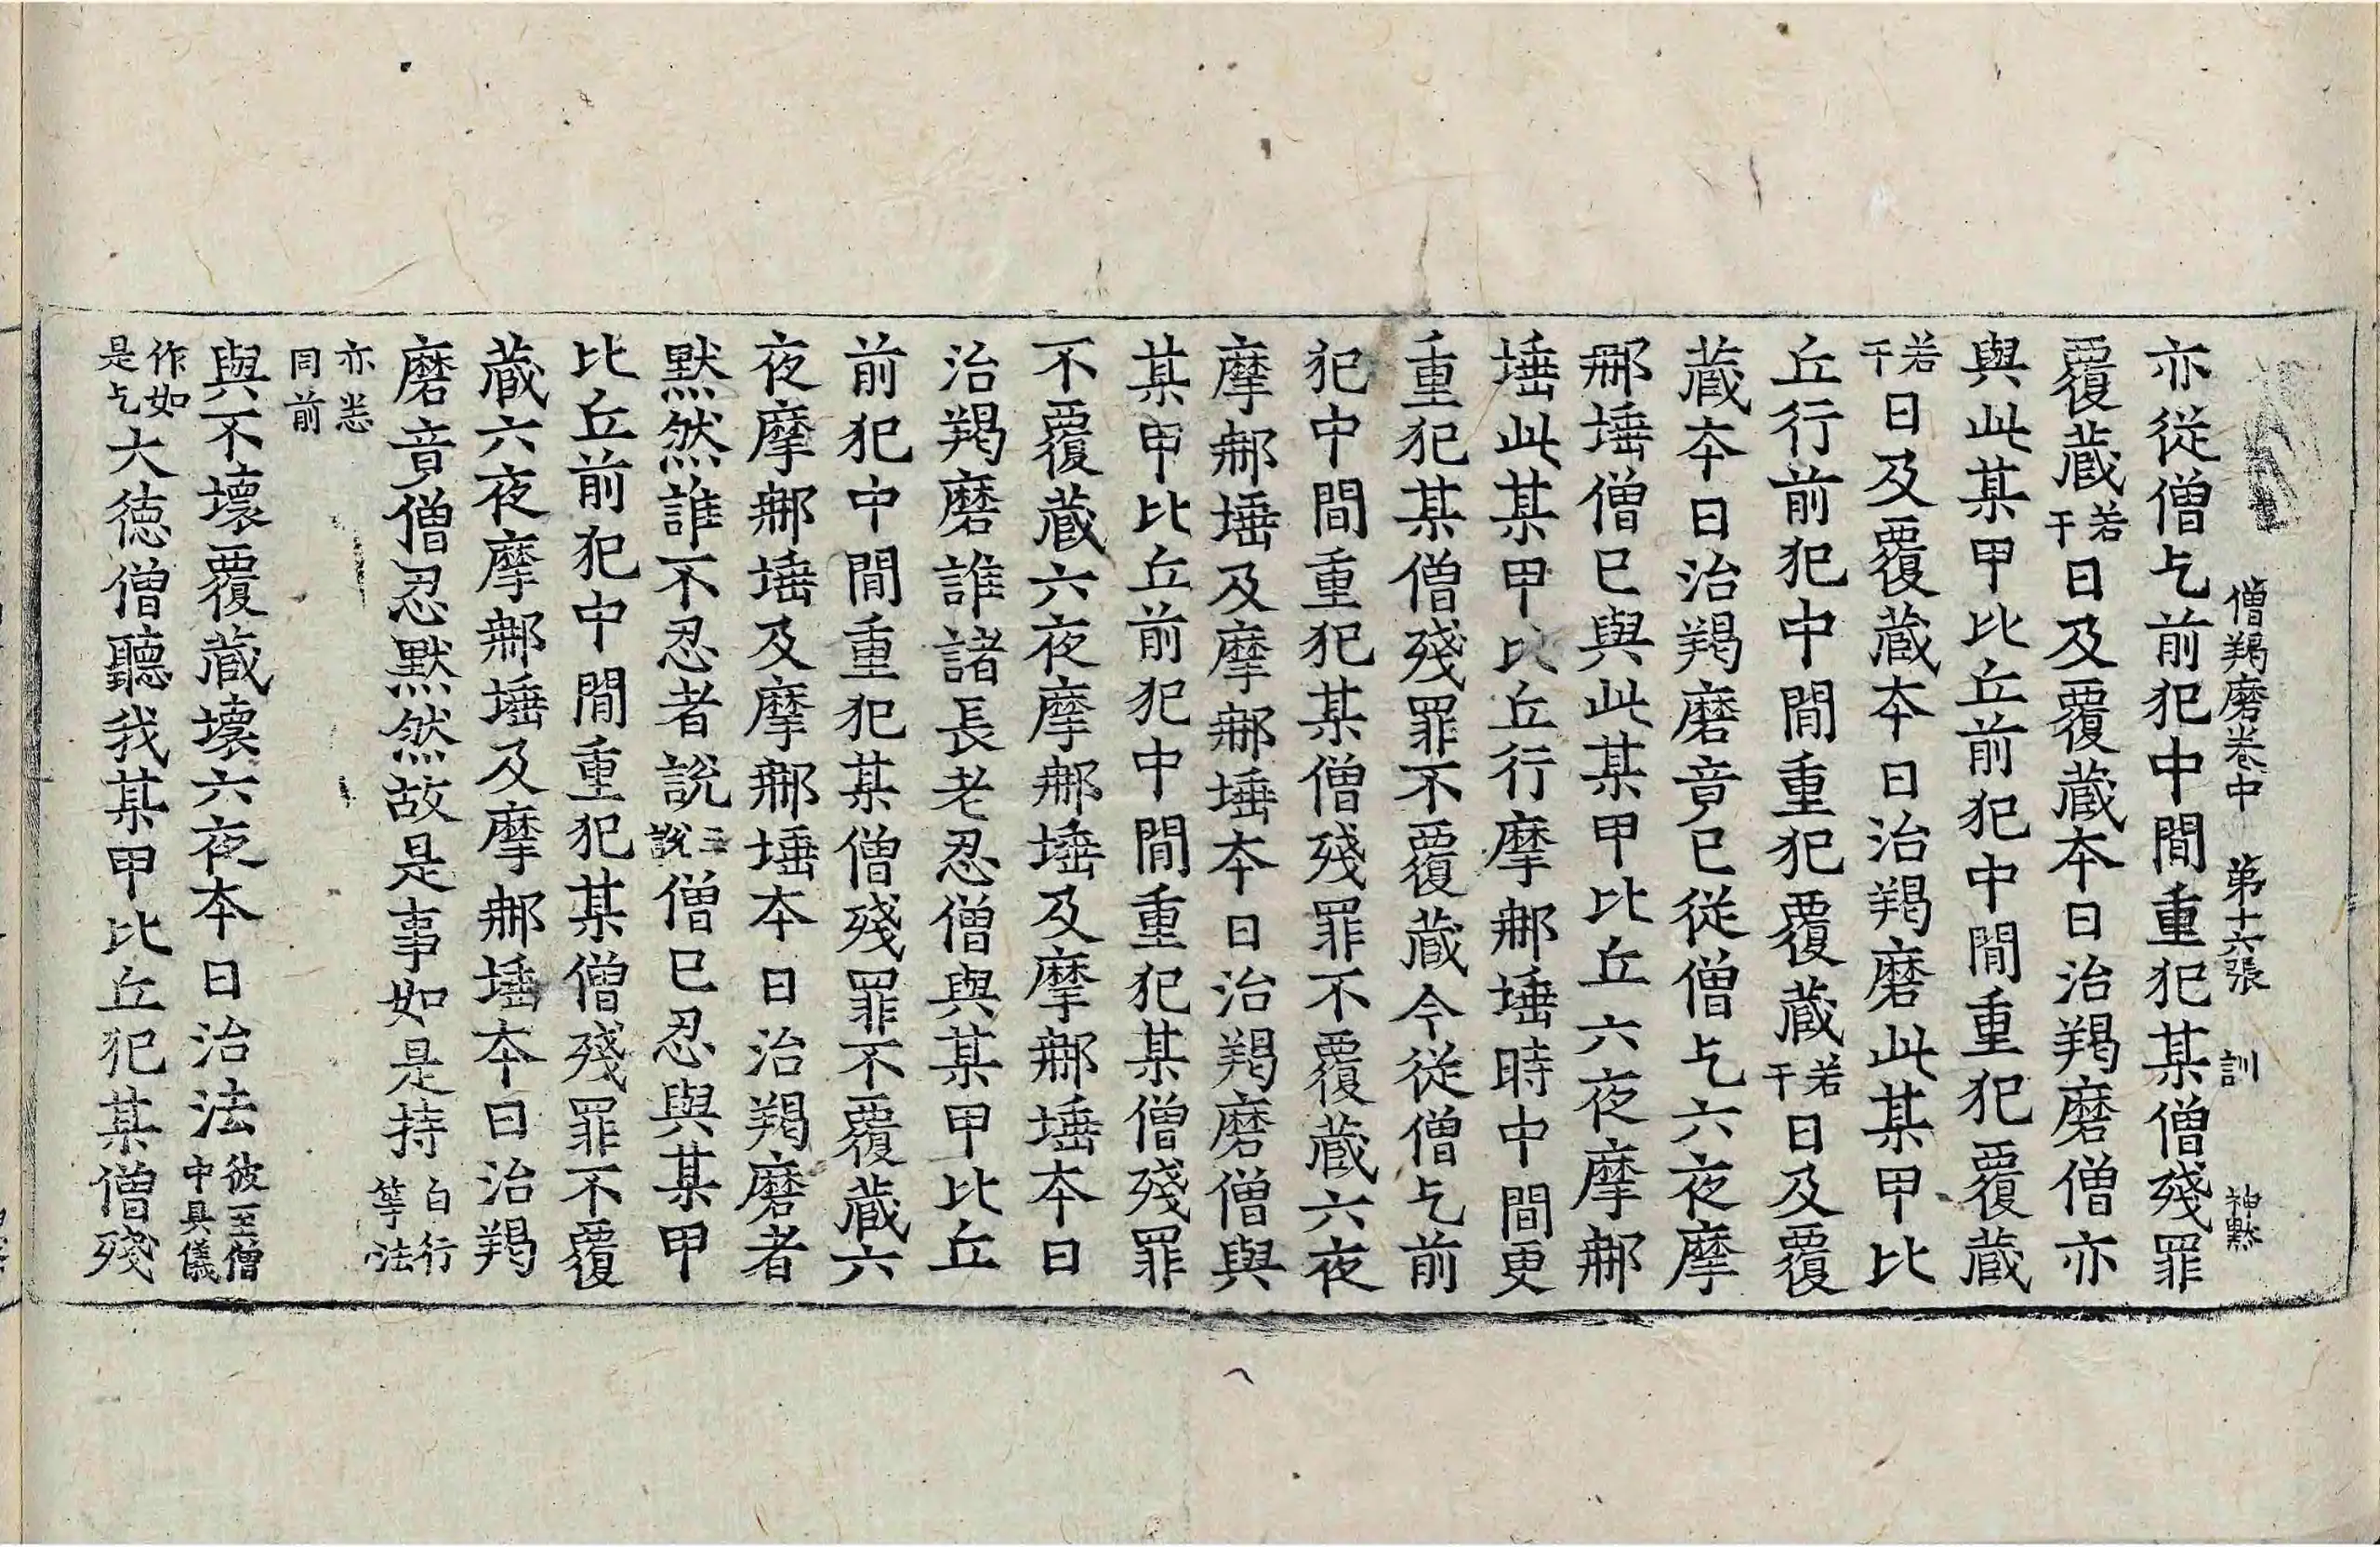 僧羯磨卷中 第十六張 訓 神㸃
亦從僧乞前犯中間重犯某僧殘罪
覆藏若干日及覆藏本日治羯磨僧亦
與此某甲比丘前犯中間重犯覆藏
若干日及覆藏本日治羯磨此某甲比
丘行前犯中間重犯覆藏若干日及覆
藏本日治羯磨竟已從僧乞六夜摩
那埵僧已與此某甲比丘六夜摩那
埵此某甲比丘行摩那埵時中間更
重犯某僧殘罪不覆藏今從僧乞前
犯中間重犯某僧殘罪不覆藏六夜
摩那埵及摩那埵本日治羯磨僧與
某甲比丘前犯中間重犯某僧殘罪
不覆藏六夜摩那埵及摩那埵本日
治羯磨誰諸長老忍僧與某甲比丘
前犯中間重犯某僧殘罪不覆藏六
夜摩那埵及摩那埵本日治羯磨者
默然誰不忍者說三說僧已忍與某甲
比丘前犯中間重犯某僧殘罪不覆
藏六夜摩那埵及摩那埵本日治羯
磨竟僧忍默然故是事如是持白行等法
亦悉同前
與不壞覆藏壞六夜本日治法彼至僧中具儀
作如是乞大德僧聽我某甲比丘犯某僧殘